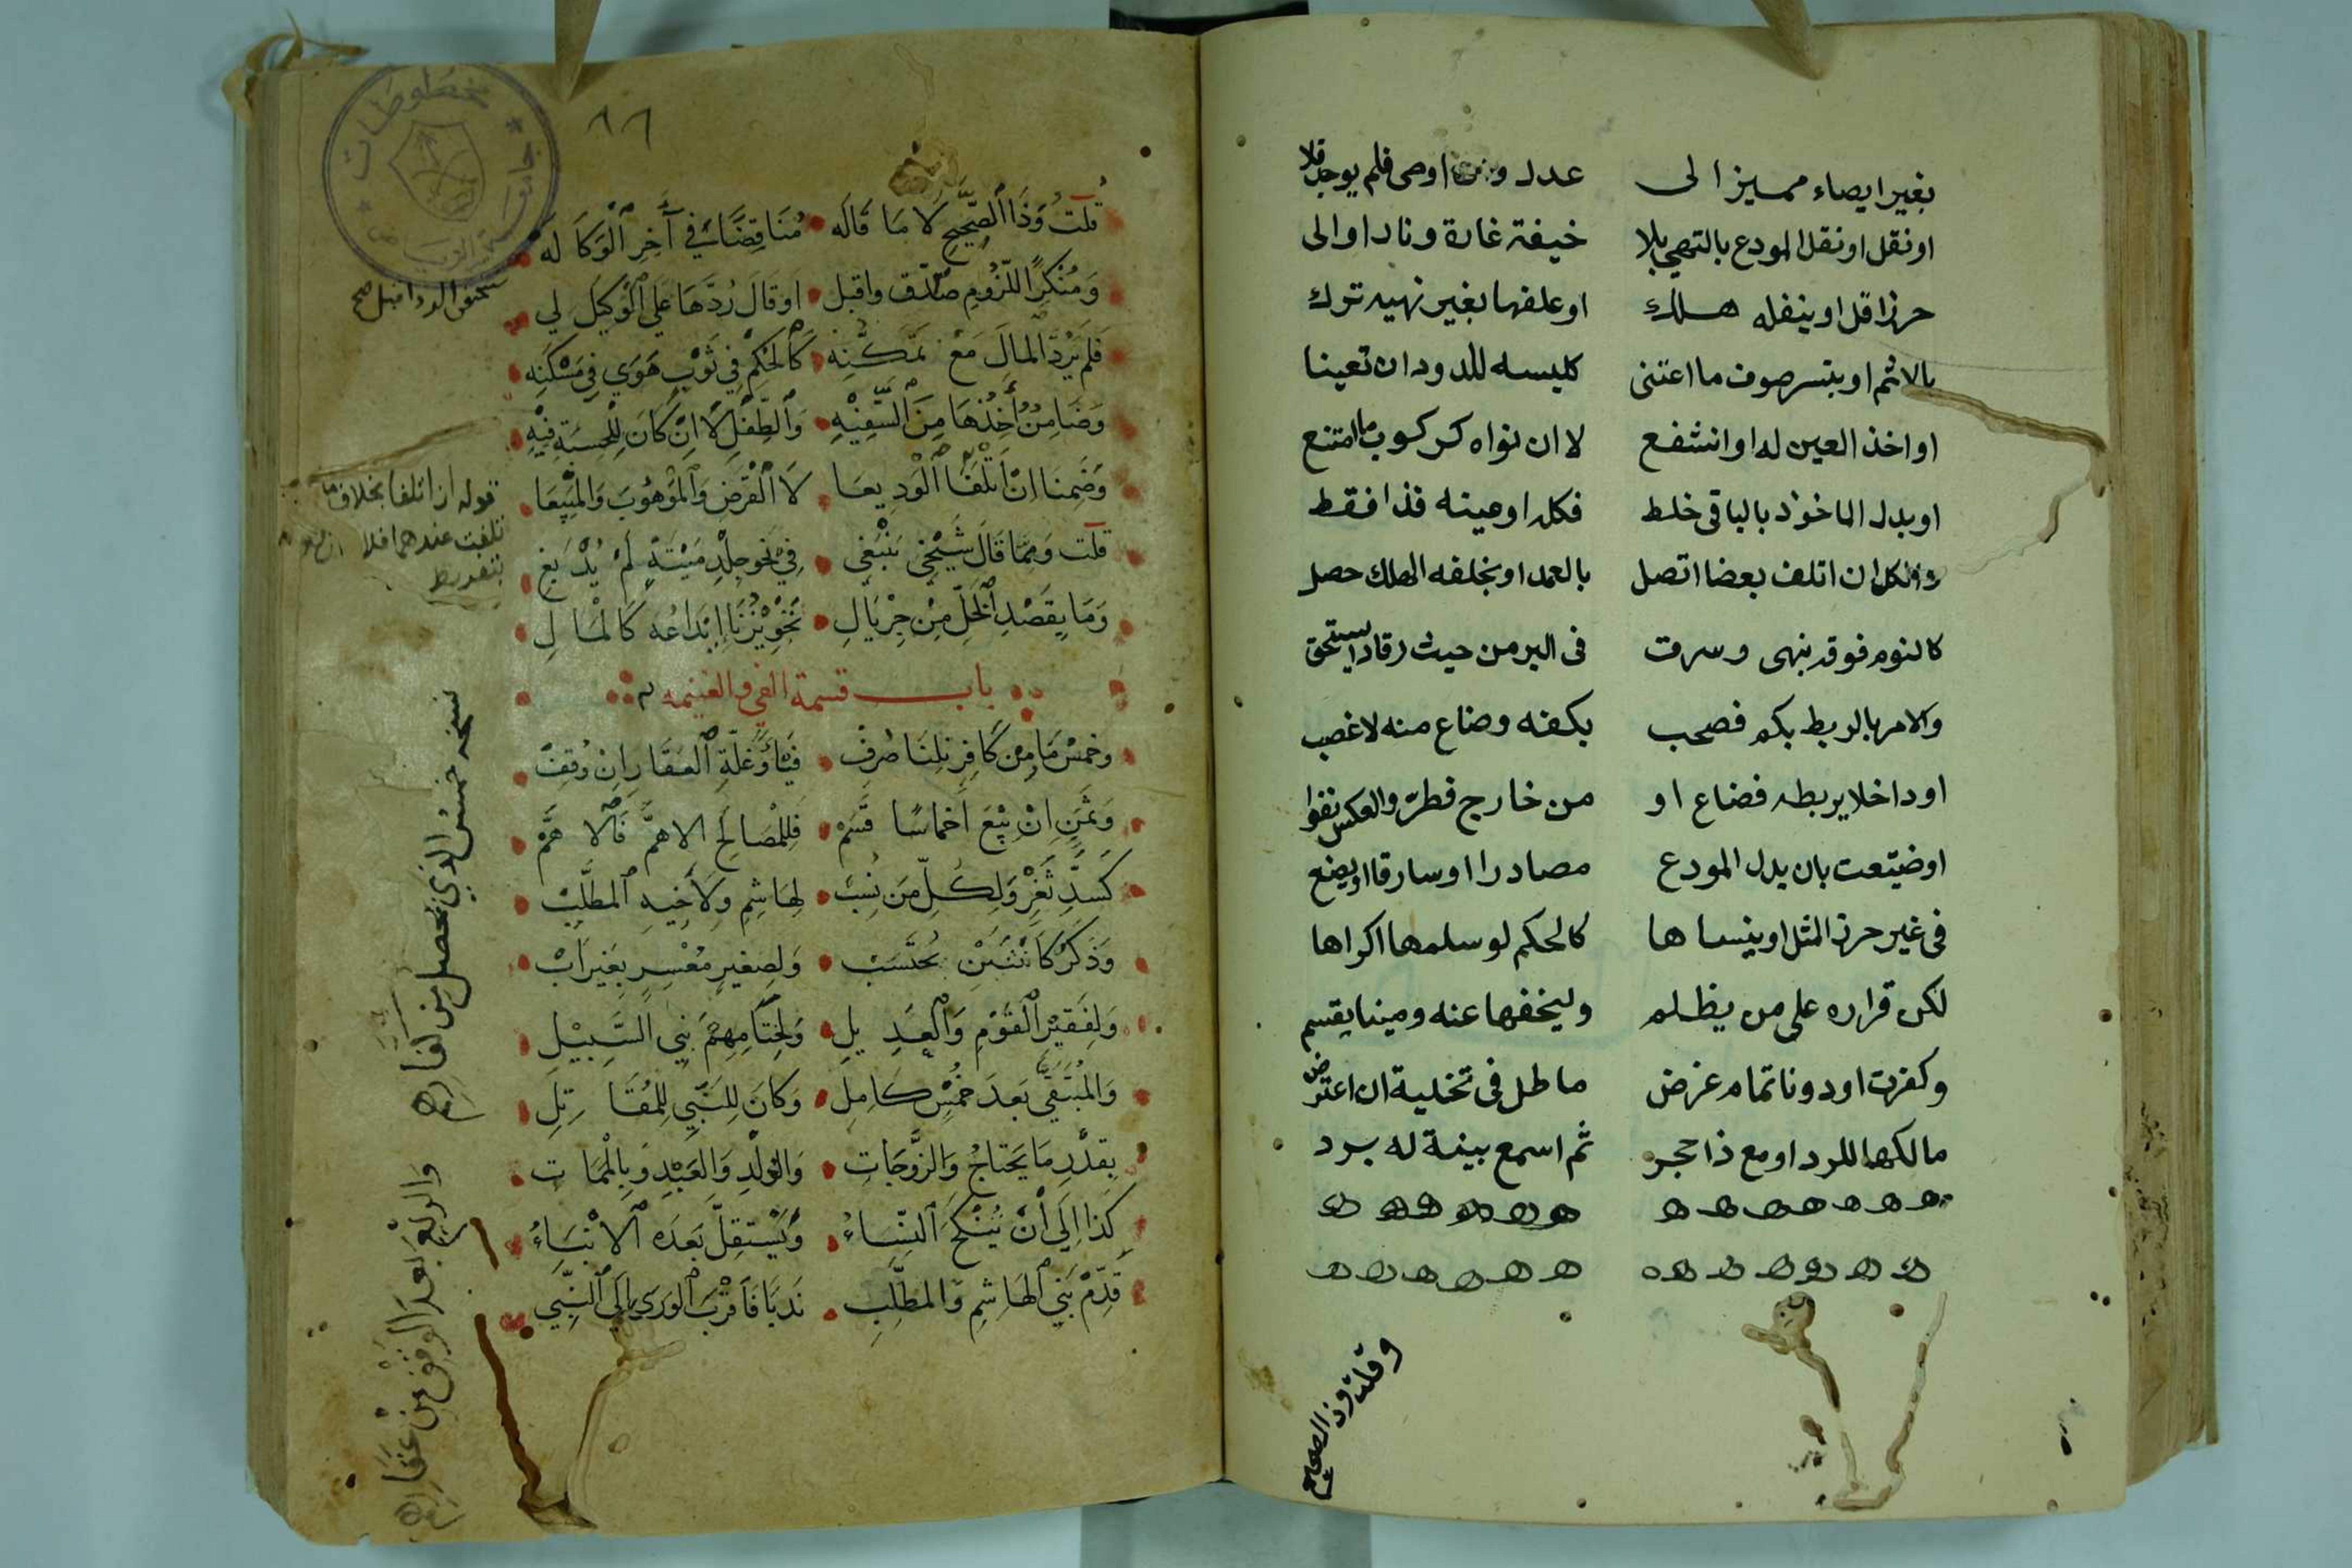 بغير ايصاء مميز الى عدل اوصى فلم يوجد فلا
او نقل او نقل المودع بالنهي بلا خيفة غارة ونار او الى
حرز اقل او ينقله هلك او علفها بغير نهيه ترك
بالاثم او بنشر صوف ما اعتنى كلبسه للدود ان تعينا
او اخذ العين له او انتفع لا ان نواه كركوب ما امتنع
او بدل الماخوذ بالباقي خلط فكله او عينه فذا فقط
والكل ان اتلف بعضا اتصل بالعمد او بخلفه الهلك حصل
كالنوم فوقه بنهى وسرقت في البر من حيث رقاد يستحق
والامر بالربط بكم فصحب بكفه وضاع منه لا غصب
او داخلا يربطه فضاع او من خارج قطر والعكس نفوا
او ضيعت بان يدل المودع مصادرا او سارقا او يضع
في غير حرز المثل او ينساها كالحكم لو سلمها اكراها
لكن قراره على من يظلم وليخفها عنه ومينا يقسم
وكفرت او دونا تمام غرض ما طل في تخلية ان اعترض
مالكها للرد او مع ذا حجر ثم اسمع بينة له برد
وقلت وذا الصحيح
٨٦
قُلتُ وَذَا الصَّحِيحُ لَا مَا قَالَه مُنَاقِضًا فِي آخِرِ الْوَكَالَه
وَمُنْكِرُ اللُّزُومِ صَدِّق واقبل او قَالَ رُدَّهَا عَلَى الْوَكِيلِ لِي
فَلَم يَرُدَّ المالَ مَعْ تَمَكُّنِه كَالْحُكْمِ فِي ثَوْبٍ هَوَى فِي مَسْكَنِه
وَضَامِنٌ أَخْذُهَا مِنَ السَّفِيْهِ وَالطِّفْلِ لَا اِنْ كَانَ لِلْحِسبَةِ فِيْهِ
وَضَمِنَا اِنْ اَتْلَفَا الْوَدِيعَا لَا الْقَرْضَ وَالْمَوْهُوْبَ وَالمَبِيْعَا
قلت وَمِمَّا قَالَ شَيْخِي يَنْبَغِي فِي نَحْوِ جِلْدِ مَيْتَةٍ لَمْ يُدْبَغِ
وَمَا بِقَصْدِ الْخَلِّ مِنْ جِرْيَالِ تَجْوِيْزُنَا إيْدَاعُه كَالْمَالِ
باب قسمة الفي والغنيمه
وخمسُ مَا مِنْ كَافِرٍ نِلْنَا صُرِفْ فَيْئًا وَغَلَّةِ الْعَقَارِ اِنْ وُقِفْ
وَثَمَنٍ اِنْ بِيْعَ اَخماسًا قُسِمْ فَلِلْمَصَالِحِ الاهمَّ فَالاهَمّ
كَسَدِّ ثَغْرٍ وَلِكُلِّ مَن نُسِبْ لِهَاشِمٍ وَلأَخِيهِ الْمطَّلِبْ
وَذَكَرٌ كَاُنْثَيَيْنِ يُحْتَسَبْ وَلِصَغِيرٍ مُعْسِرٍ بِغَيْرِ اَبْ
وَلِفَقِيْرِ الْقَوْمِ وَالْعَدِيلِ وَلِخِتَامِهِمْ بَنِي السَّبِيْلِ
وَالمُتَبَقِّي بَعدَ خُمْسٍ كَامِلِ وَكَانَ لِلنَّبِيِّ لِلمُقَاتِلِ
بِقَدْرِ مَا يَحْتَاجُ وَالزَّوْجَاتِ وَالوُلْدِ وَالعَبْدِ وَبِالْمَمَاتِ
كَذَا اِلَى أَنْ يُنْكَحَ النِّسَاءُ وَيَسْتَقِلَّ بَعدَه الابْنَاءُ
قَدِّمْ بَنِي الْهَاشِمِ وَالمطَّلِبِ نَدبًا فَاَقْرَبَ الورَى اِلَى النَّبِي
قوله ان اتلفا بخلاف ما
تلفت عندهما فلا
بتفريط
نسخه خمس الذي يحصل من كفار